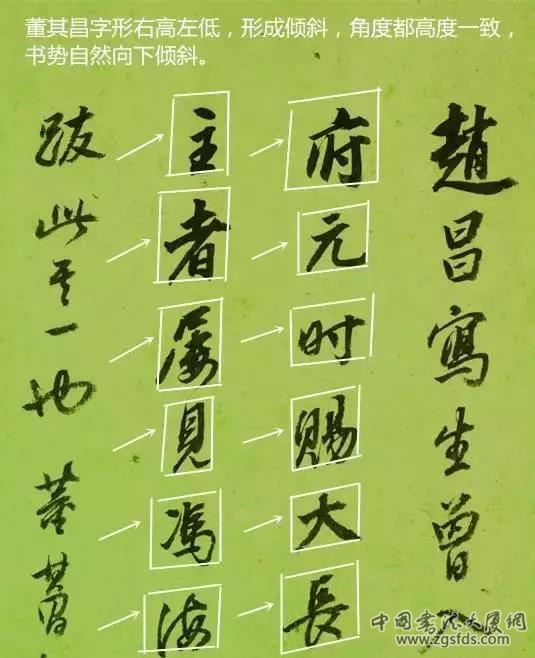 董其昌字形右高左低，形成倾斜，角度都高度一致，
书势自然向下倾斜。
趙昌寫生曾入
府元时賜大長
主者屡見馮海
跋此其一也董其昌
中国书法大厦網
www.zgsfds.com